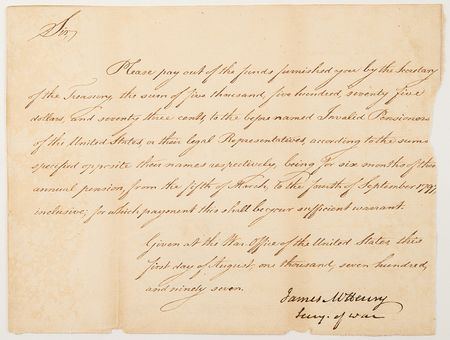 Sir,
Please pay out of the funds furnished you by the Secretary
of the Treasury, the sum of five thousand, five hundred, seventy five
dollars, and seventy three cents, to the before named Invalid Pensioners
of the United States, or their legal Representatives, according to the sums
specified opposite their names respectively, being for six months of their
annual pension, from the fifth of March, to the fourth of September 1797,
inclusive; for which payment this shall be your sufficient warrant.
Given at the War Office of the United States, this
first day of August, one thousand, seven hundred,
and ninety seven.
James McHenry
Secry. of war